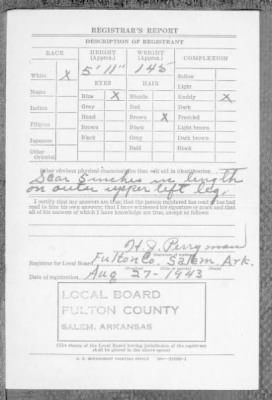 REGISTRAR'S REPORT
DESCRIPTION OF REGISTRANT
RACE HEIGHT (Approx.) WEIGHT (Approx.) COMPLEXION
5' 11" 145 Sallow
White X Light
EYES HAIR
Negro Blue X Blonde Ruddy X
Gray Red Dark
Indian
Hazel Brown X Freckled
Filipino Brown Black Light brown
Japanese Black Gray Dark brown
Other Oriental Bald Black
Other obvious physical characteristics that will aid in identification
Scar 5 inches in length
on outer upper left leg.
I certify that my answers are true; that the person registered has read or has had
read to him his own answers; that I have witnessed his signature or mark and that
all of his answers of which I have knowledge are true, except as follows:
H. J. Perryman
Registrar for Local Board Fulton Co. Salem, Ark.
Date of registration Aug 27-1943
LOCAL BOARD
FULTON COUNTY
SALEM, ARKANSAS
(The stamp of the Local Board having jurisdiction of the registrant
shall be placed in the above space)
U. S. GOVERNMENT PRINTING OFFICE